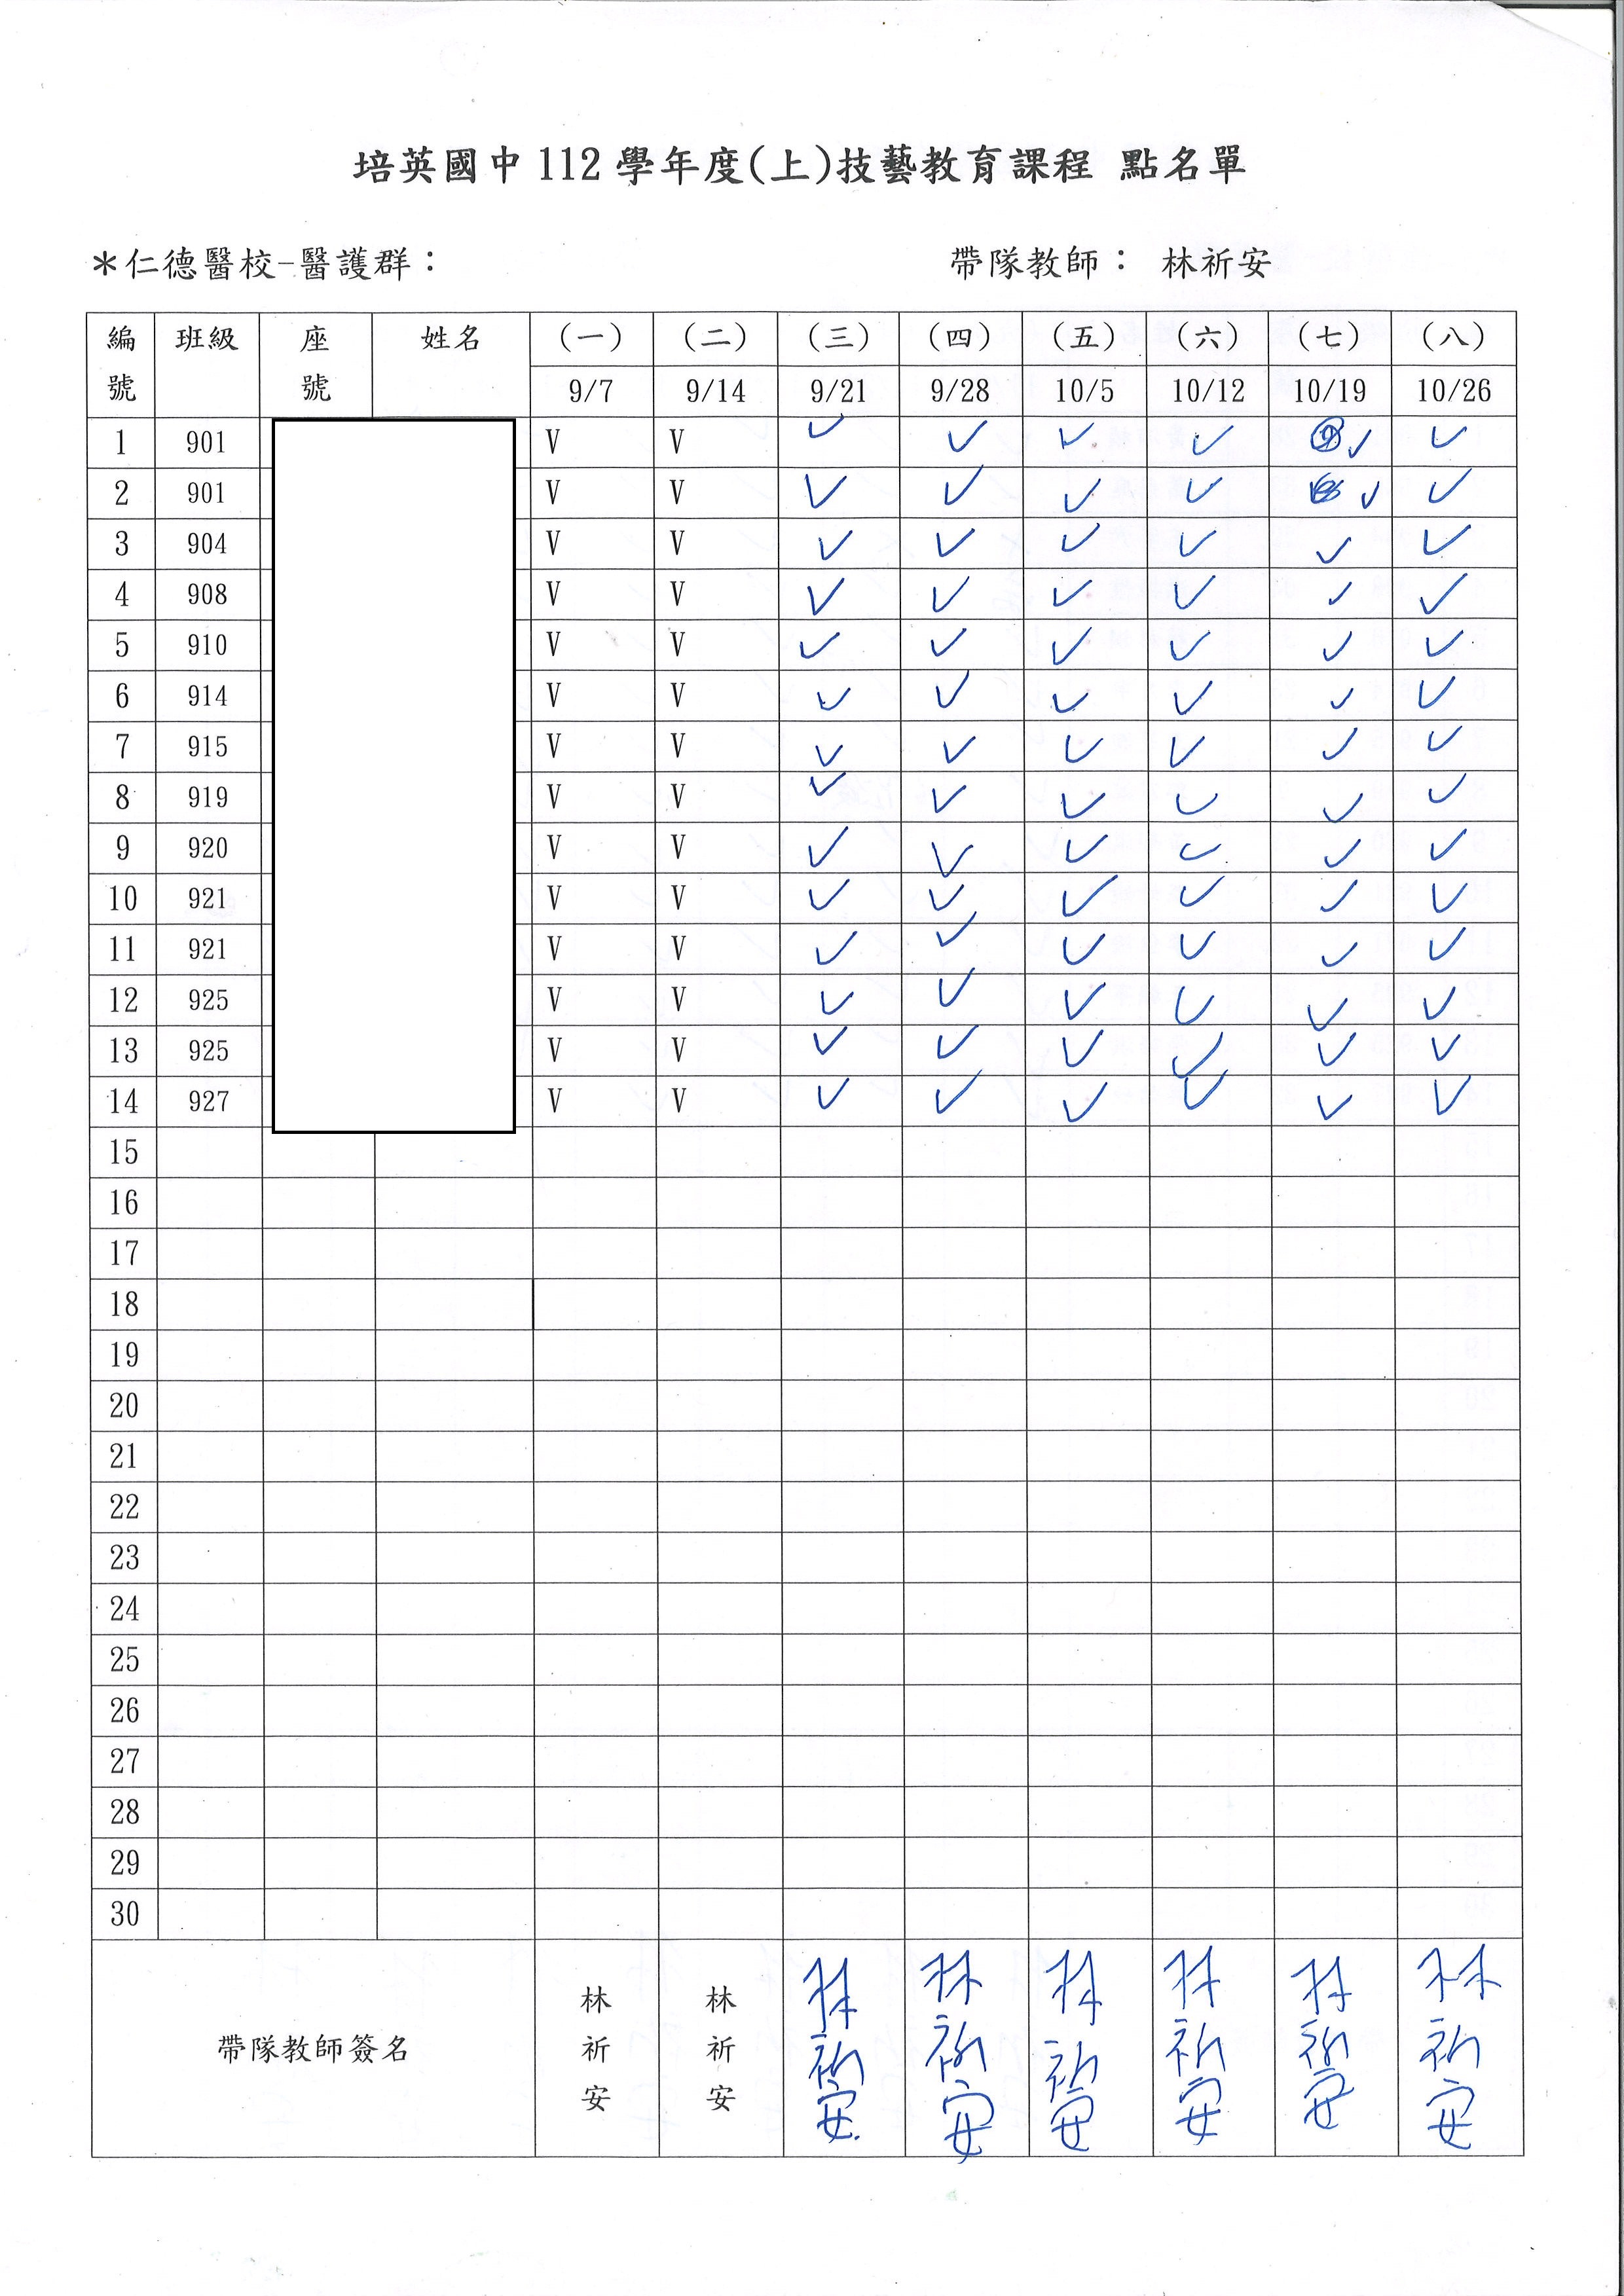 培英國中 112 學年度(上)技藝教育課程 點名單
＊仁德醫校-醫護群： 帶隊教師： 林祈安
編號 班級 座號 姓名 (一) (二) (三) (四) (五) (六) (七) (八)
9/7 9/14 9/21 9/28 10/5 10/12 10/19 10/26
1 901 V V ✓ ✓ ✓ ✓ ✓ ✓
2 901 V V ✓ ✓ ✓ ✓ ✓ ✓
3 904 V V ✓ ✓ ✓ ✓ ✓ ✓
4 908 V V ✓ ✓ ✓ ✓ ✓ ✓
5 910 V V ✓ ✓ ✓ ✓ ✓ ✓
6 914 V V ✓ ✓ ✓ ✓ ✓ ✓
7 915 V V ✓ ✓ ✓ ✓ ✓ ✓
8 919 V V ✓ ✓ ✓ ✓ ✓ ✓
9 920 V V ✓ ✓ ✓ ✓ ✓ ✓
10 921 V V ✓ ✓ ✓ ✓ ✓ ✓
11 921 V V ✓ ✓ ✓ ✓ ✓ ✓
12 925 V V ✓ ✓ ✓ ✓ ✓ ✓
13 925 V V ✓ ✓ ✓ ✓ ✓ ✓
14 927 V V ✓ ✓ ✓ ✓ ✓ ✓
15
16
17
18
19
20
21
22
23
24
25
26
27
28
29
30
帶隊教師簽名 林祈安 林祈安 林祈安 林祈安 林祈安 林祈安 林祈安 林祈安